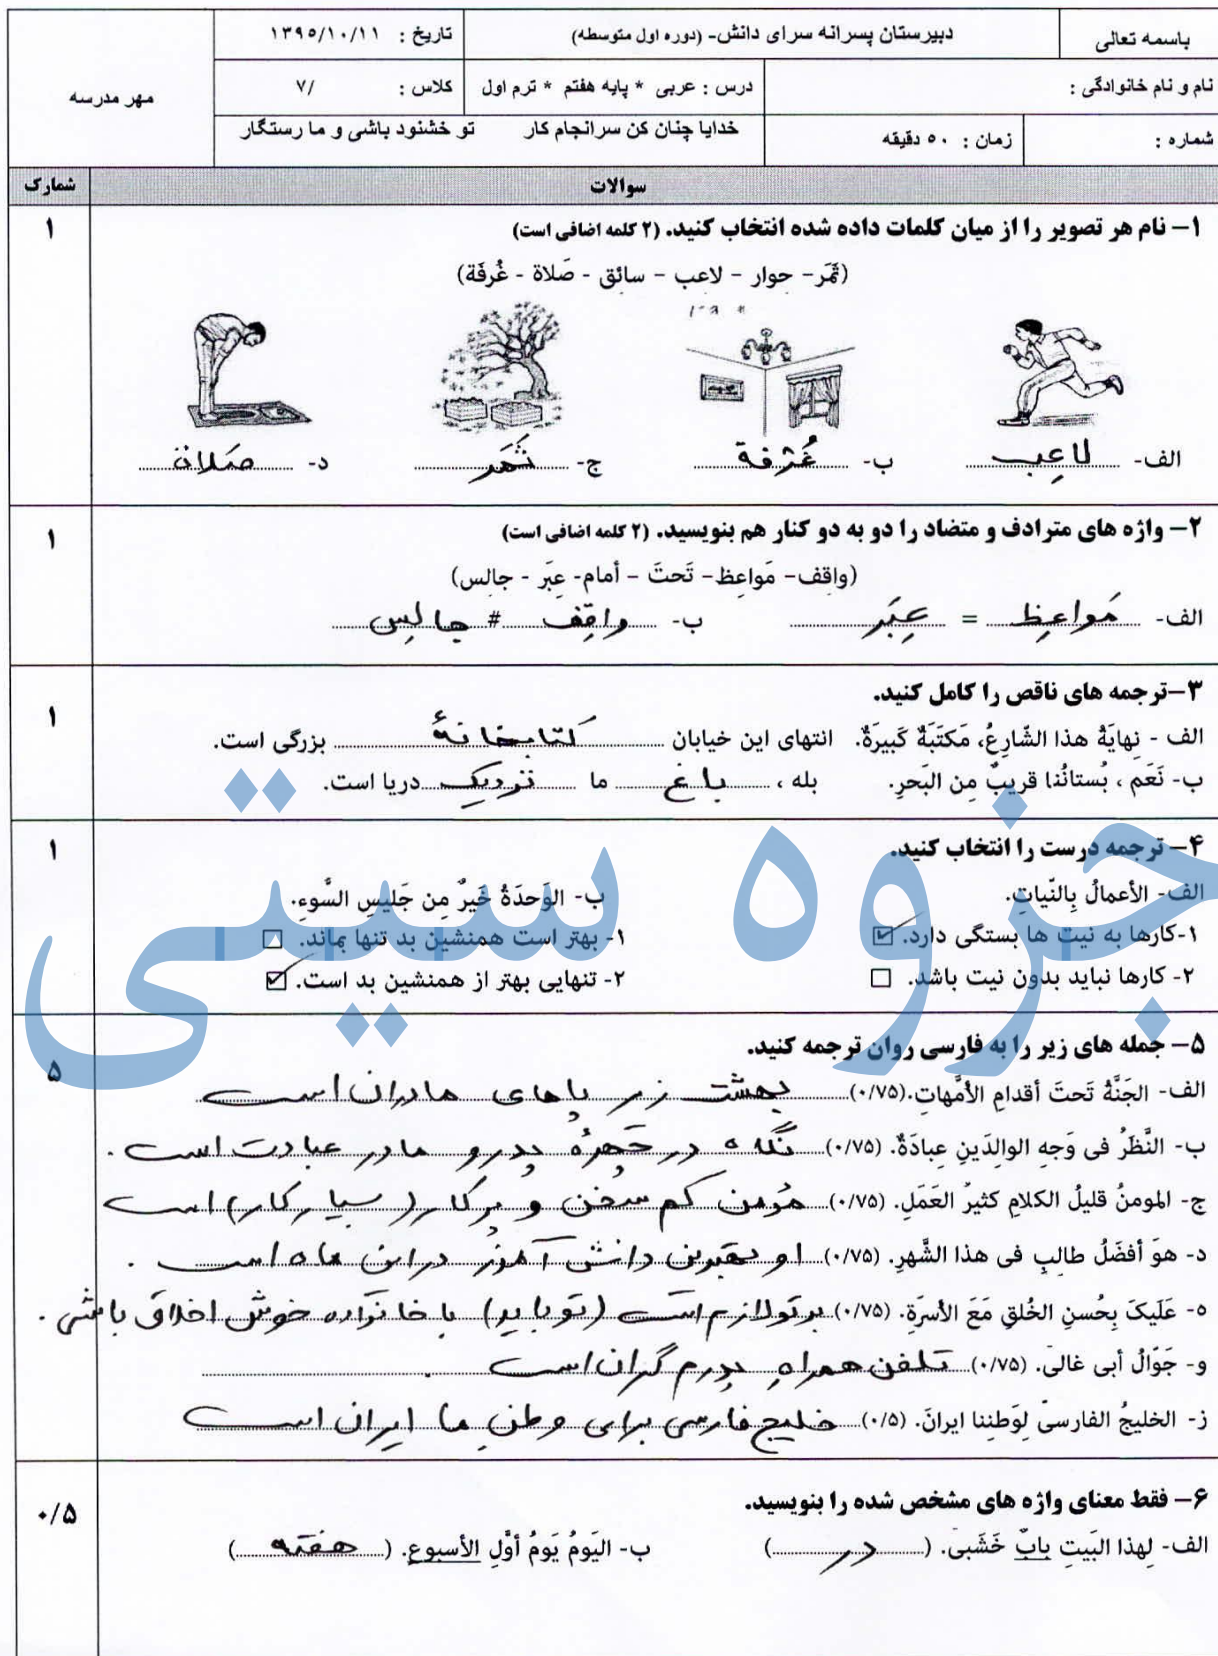 باسمه تعالی
دبیرستان پسرانه سرای دانش- (دوره اول متوسطه)
تاریخ : ۱۳۹۵/۱۰/۱۱
مهر مدرسه
نام و نام خانوادگی :
درس : عربی * پایه هفتم * ترم اول
کلاس : ۷/
شماره :
زمان : ۵۰ دقیقه
خدایا چنان کن سرانجام کار تو خشنود باشی و ما رستگار
سوالات
شمارک
۱- نام هر تصویر را از میان کلمات داده شده انتخاب کنید. (۲ کلمه اضافی است)
۱
(ثَمَر- حوار - لاعب - سائق - صَلاة - غُرفَة)
الف- لاعِب ب- غُرفة ج- ثَمَر د- صَلاة
۲- واژه های مترادف و متضاد را دو به دو کنار هم بنویسید. (۲ کلمه اضافی است)
۱
(واقِف- مَواعِظ- تَحتَ - أمام- عِبَر - جالِس)
الف- مَواعِظ = عِبَر ب- واقِف # جالِس
۳-ترجمه های ناقص را کامل کنید.
۱
الف - نِهایَةُ هذا الشّارِعُ، مَکتَبَةٌ کَبیرَةٌ. انتهای این خیابان کتابخانهٔ بزرگی است.
ب- نَعَم ، بُستانُنا قریبٌ مِن البَحرِ. بله ، باغ ما نزدیک دریا است.
۴- ترجمه درست را انتخاب کنید.
۱
الف- الأعمالُ بِالنّیاتِ. ب- الوَحدَةُ خَیرٌ مِن جَلیسِ السُّوءِ.
۱-کارها به نیت ها بستگی دارد. ☑ ۱- بهتر است همنشین بد تنها بماند. □
۲- کارها نباید بدون نیت باشد. □ ۲- تنهایی بهتر از همنشین بد است. ☑
جزوه سیتی
۵- جمله های زیر را به فارسی روان ترجمه کنید.
۵
الف- الجَنَّةُ تَحتَ أقدامِ الأمَّهاتِ.(۰/۷۵) بهشت زیر پاهای مادران است
ب- النَّظَرُ فی وَجهِ الوالِدَینِ عِبادَةٌ. (۰/۷۵) نگاه در چهرهٔ پدر و مادر عبادت است .
ج- المومنُ قلیلُ الکلامِ کثیرُ العَمَلِ. (۰/۷۵) مؤمن کم سخن و پرکار (بسیار کار) است
د- هوَ أفضَلُ طالبٍ فی هذا الشَّهرِ. (۰/۷۵) او بهترین دانش آموز در این ماه است .
ه- عَلَیکَ بِحُسنِ الخُلقِ مَعَ الأسرَةِ. (۰/۷۵) بر تو لازم است (تو باید) با خانواده خوش اخلاق باشی .
و- جَوّالُ أبی غالیَ. (۰/۷۵) تلفن همراه پدرم گران است .
ز- الخلیجُ الفارسیّ لِوَطنِنا ایرانَ. (۰/۵) خلیج فارس برای وطن ما ایران است
۶- فقط معنای واژه های مشخص شده را بنویسید.
۰/۵
الف- لِهذا البَیتِ بابٌ خَشَبی. (در) ب- الیَومُ یَومُ أوَّلِ الأسبوعِ. (هفته)